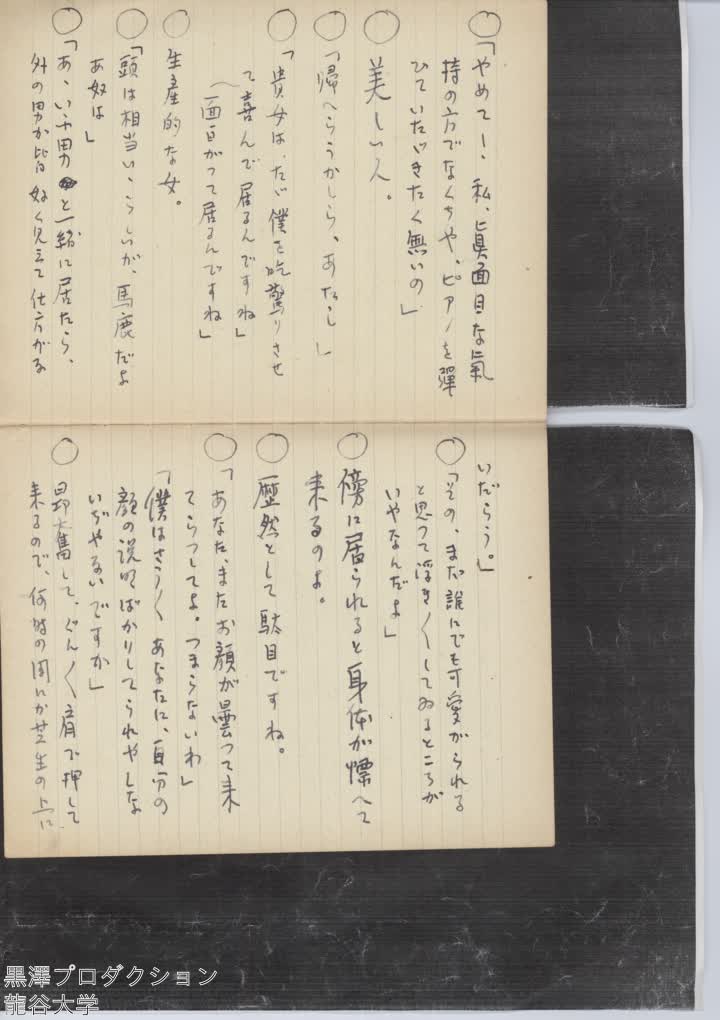 ○「やめてー、私、眞面目な氣
持の方でなくちや、ピアノを彈
ひていたゞきたく無いの」
○美しい人。
○「帰へらうかしら、あたし」
○「貴女は、たゞ僕を吃驚りさせ
て喜んで居るんですね」
(面白がつて居るんですね」
○生産的な女。
○「頭は相当いゝらしいが、馬鹿だよ
あ奴は」
○「あゝいふ男と一緒に居たら、
外の男が皆 好く見えて仕方がな
いだらう。」
○「その、まだ誰にでも可愛がられる
と思つて浮き〱してゐるところが
いやなんだよ」
○傍に居られると身体が慄へて
来るのよ。
○歴然として駄目ですね。
○「あなた、またお顔が曇つて来
てらつしてよ。つまらないわ」
「僕はさう〱あなたに、自分の
顔の説明ばかりしてられやしな
いぢやないですか」
○昂奮して、ぐん〱肩で押して
来るので、何時の間にか芝生の上に
黒澤プロダクション
龍谷大学